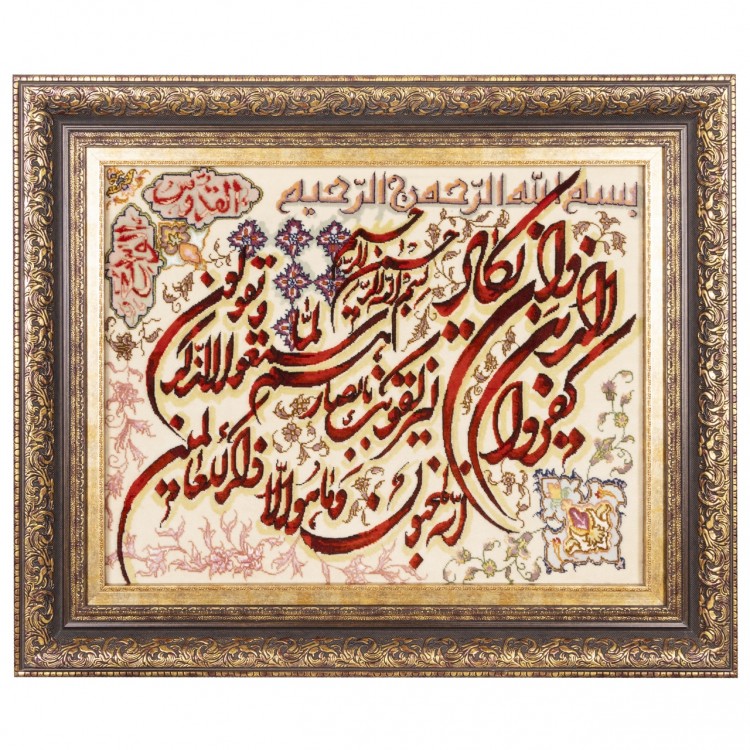 بسم الله الرحمن الرحیم
القدوس
بسم الله الرحمن الرحیم
وان یکاد
الذین
کفروا
لیزلقونک بابصارهم
لما
سمعوا الذکر
ویقولون
انه لمجنون
وما هو الا
ذکر للعالمین